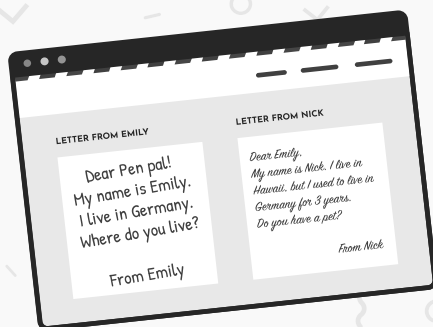 LETTER FROM EMILY
Dear Pen pal!
My name is Emily.
I live in Germany.
Where do you live?
From Emily
LETTER FROM NICK
Dear Emily,
My name is Nick. I live in
Hawaii, but I used to live in
Germany for 3 years.
Do you have a pet?
From Nick